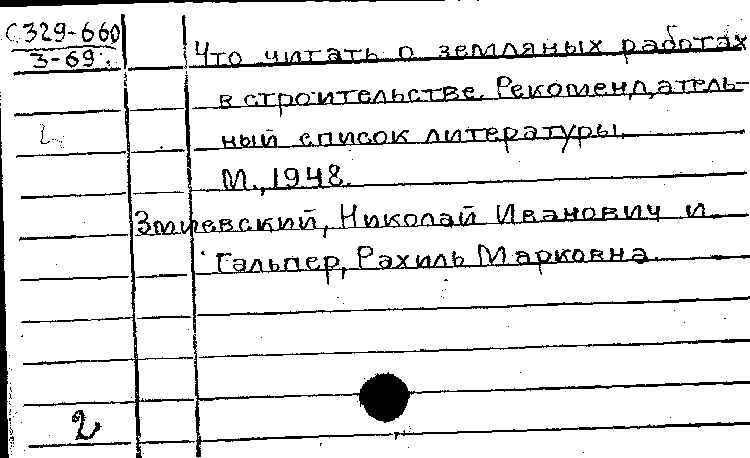 С329-660
3-69
Что читать о земляных работах
в строительстве. Рекомендатель-
ный список литературы.
М., 1948.
Змиевский, Николай Иванович и
Гальпер, Рахиль Марковна
2